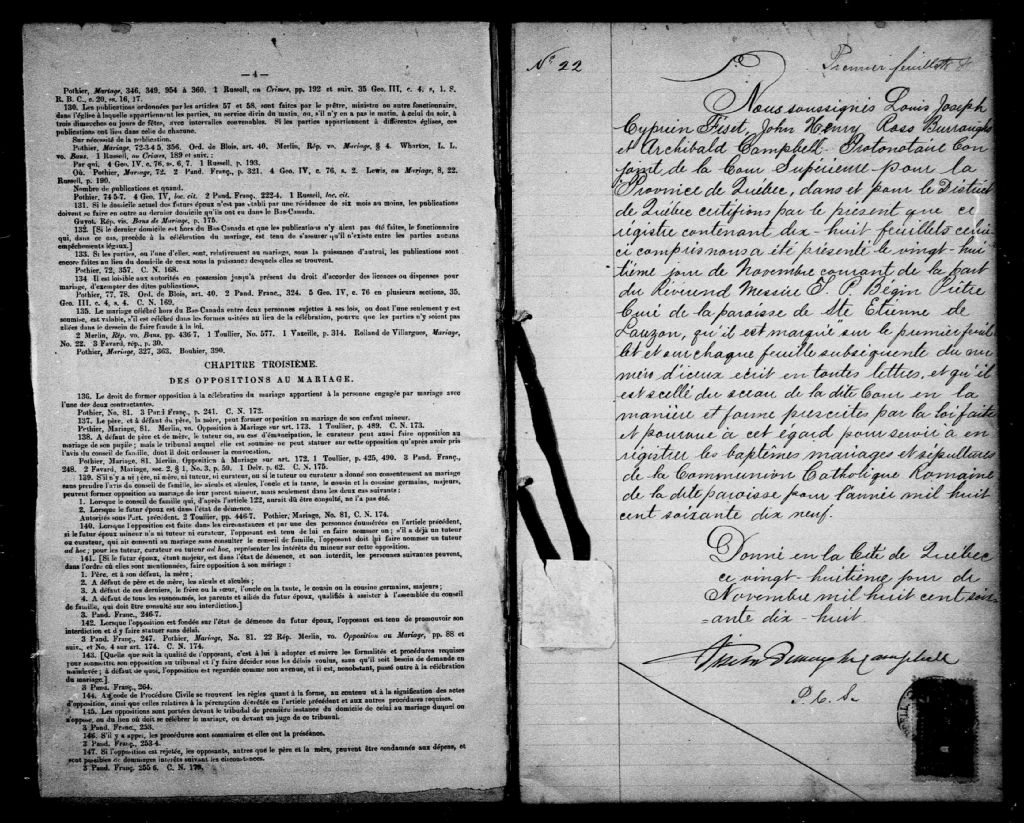 — 4 —
Pothier, Mariage, 346, 349, 954 à 360. 1 Russell, on Crimes, pp. 192 et suiv. 35 Geo. III, c. 4, s, 1. S.
R. B. C., c. 20, ss. 16, 17.
130. Les publications ordonnées par les articles 57 et 58, sont faites par le prêtre, ministre ou autre fonctionnaire,
dans l'église à laquelle appartiennent les parties, au service divin du matin, ou, s'il n'y en a pas le matin, à celui du soir, à
trois dimanches ou jours de fêtes, avec intervalles convenables. Si les parties appartiennent à différentes églises, ces
publications ont lieu dans celle de chacune.
Sur nécessité de la publication.
Pothier, Mariage, 72-3-4 5, 356. Ord. de Blois, art. 40. Merlin, Rép. vo. Mariage, § 4. Wharton, L. L.
vo. Bans. 1 Russell, on Crimes, 189 et suiv. :
Par qui. 4 Geo. IV, c. 76, ss. 6, 7. 1 Russell, p. 193.
Où. Pothier, Mariage, 72. 2 Pand. Franç., p. 321. 4 Geo. IV, c. 76, s. 2. Lewis, on Mariage, 8, 22.
Russell, p. 190.
Nombre de publications et quand.
Pothier, 74 5-7. 4 Geo. IV, loc. cit. 2 Pand. Franç., 222-4. 1 Russell, loc. cit.
131. Si le domicile actuel des futurs époux n'est pas établi par une résidence de six mois au moins, les publications
doivent se faire en outre au dernier domicile qu'ils ont eu dans le Bas-Canada.
Guyot, Rép. vis. Bans de Mariage, p. 175.
132. [Si le dernier domicile est hors du Bas-Canada et que les publications n'y aient pas été faites, le fonctionnaire
qui, dans ce cas, procède à la célébration du mariage, est tenu de s'assurer qu'il n'existe entre les parties aucuns
empêchements légaux.]
133. Si les parties, ou l'une d'elles, sont, relativement au mariage, sous la puissance d'autrui, les publications sont
encore faites au lieu du domicile de ceux sous la puissance desquels elles se trouvent.
Pothier, 72, 357. C. N. 168.
134 Il est loisible aux autorités en possession jusqu'à présent du droit d'accorder des licences ou dispenses pour
mariage, d'exempter des dites publications.
Pothier, 77, 78. Ord. de Blois, art. 40. 2 Pand. Franç., 324. 5 Geo. IV, c. 76 en plusieurs sections, 35.
Geo. III, c. 4, s. 4. C. N. 169.
135. Le mariage célébré hors du Bas-Canada entre deux personnes sujettes à ses lois, ou dont l'une seulement y est
soumise, est valable, s'il est célébré dans les formes usitées au lieu de la célébration, pourvu que les parties n'y soient pas
allées dans le dessein de faire fraude à la loi.
2 Merlin, Rép. vo. Bans, pp. 436 7. 1 Toullier, No. 577. 1 Vazeille, p. 314. Rolland de Villargues, Mariage,
No. 22. 3 Favard, rép., p. 30.
Pothier, Mariage, 327, 363. Bouhier, 390.
CHAPITRE TROISIÈME.
DES OPPOSITIONS AU MARIAGE.
136. Le droit de former opposition à la célébration du mariage appartient à la personne engagée par mariage avec
l'une des deux contractantes.
Pothier, No. 81. 3 Pand Franç., p. 241. C. N. 172.
137. Le père, et à défaut du père, la mère, peut former opposition au mariage de son enfant mineur.
Pothier, Mariage, 81. Merlin, vo. Opposition à Mariage sur art. 173. 1 Toullier, p. 489. C. N. 173.
138. A défaut de père et de mère, le tuteur ou, au cas d'émancipation, le curateur peut aussi faire opposition au
mariage de son pupile ; mais le tribunal auquel elle est soumise ne peut statuer sur cette opposition qu'après avoir pris
l'avis du conseil de famille, dont il doit ordonner la convocation.
Pothier, Mariage, 81. Merlin vo. Opposition à Mariage sur art. 172. 1 Toullier, p. 425, 490. 3 Pand. Franç.,
248. 2 Favard, Mariage, sec. 2, § 1, No. 3, p. 59. 1 Delv. p. 62. C. N. 175.
139. S'il n'y a ni père, ni mère, ni tuteur, ni curateur, ou si le tuteur ou curateur a donné son consentement au mariage
sans prendre l'avis du conseil de famille, les aïeuls et aïeules, l'oncle et la tante, le cousin et la cousine germains, majeurs,
peuvent former opposition au mariage de leur parent mineur, mais seulement dans les deux cas suivants :
1. Lorsque le conseil de famille qui, d'après l'article 122, aurait dû être consulté, ne l'a pas été.
2. Lorsque le futur époux est dans l'état de démence.
Autorisés sous l'art. précédent. 2 Toullier, pp. 446-7. Pothier, Mariage, No. 81, C. N. 174.
140. Lorsque l'opposition est faite dans les circonstances et par une des personnes énumérées en l'article précédent,
si le futur époux mineur n'a ni tuteur ni curateur, l'opposant est tenu de lui en faire nommer un ; s'il a déjà un tuteur
ou curateur, qui ait consenti au mariage sans consulter le conseil de famille, l'opposant doit lui faire nommer un tuteur
ad hoc ; pour les tuteur, curateur ou tuteur ad hoc, représenter les intérêts du mineur sur cette opposition.
141. [Si le futur époux, étant majeur, est dans l'état de démence, et non interdit, les personnes suivantes peuvent,
dans l'ordre où elles sont mentionnées, faire opposition à son mariage :
1. Père, et à son défaut, la mère ;
2. A défaut de père et de mère, les aïeuls et aïeules ;
3. A défaut de ces derniers, le frère ou la sœur, l'oncle ou la tante, le cousin ou la cousine germains, majeurs ;
4. A défaut de tous les susnommés, les parents et alliés du futur époux, qualifiés à assister à l'assemblée du conseil
de famille, qui doit être consulté sur son interdiction.]
3. Pand. Franç., 246-7.
142. Lorsque l'opposition est fondée sur l'état de démence du futur époux, l'opposant est tenu de promouvoir son
interdiction et d'y faire statuer sans délai.
3 Pand. Franç., 247. Pothier, Mariage, No. 81. 22 Rép. Merlin, vo. Opposition au Mariage, pp. 88 et
suiv., et No. 4 sur art. 174. C. N. 174.
143. [Quelle que soit la qualité de l'opposant, c'est à lui à adopter et suivre les formalités et procédures requises
pour soumettre son opposition au tribunal et l'y faire décider sous les délais voulus, sans qu'il soit besoin de demande en
mainlevée ; à défaut de quoi, l'opposition est regardée comme non avenue, et il est, nonobstant, passé outre à la célébration
du mariage.]
3 Pand. Franç., 264.
144. Au code de Procédure Civile se trouvent les règles quant à la forme, au contenu et à la signification des actes
d'opposition, ainsi que celles relatives à la péremption décrétée en l'article précédent et aux autres procédures requises.
145. Les oppositions sont portées devant le tribunal de première instance du domicile de celui au mariage duquel on
s'oppose, ou du lieu où doit se célébrer le mariage, ou devant un juge de ce tribunal.
3 Pand. Franç., 253.
146. S'il y a appel, les procédures sont sommaires et elles ont la préséance.
3 Pand. Franç., 253-4.
147. Si l'opposition est rejetée, les opposants, autres que le père et la mère, peuvent être condamnés aux dépens, et
sont passibles de dommages intérêts suivant les circonstances.
3 Pand. Franç. 255 6. C. N. 179.
No 22
Premier feuillet
Nous soussignés Louis Joseph
Cyprien Fiset, John Henry Ross Burroughs
et Archibald Campbell Protonotaire Con
joint de la Cour Supérieure pour la
Province de Québec, dans et pour le District
de Québec certifions par le présent que ce
régistre contenant dix-huit feuillets celui
ci compris nous a été présenté le vingt-hui
tième jour de Novembre courant de la part
du Révérend Messire F. P. Bégin Prêtre
Curé de la paroisse de Ste Etienne de
Lauzon, qu'il est marqué sur le premier feuil
let et sur chaque feuille subséquente du nu
méro d'iceux écrit en toutes lettres, et qu'il
est scellé du sceau de la dite Cour en la
manière et forme prescrites par la Loi faite
et pourvue à cet égard pour servir à en
régistrer les baptêmes mariages et sépultures
de la Communion Catholique Romaine
de la dite paroisse pour l'année mil huit
cent soixante dix neuf.
Donné en la Cité de Québec
ce vingt-huitième jour de
Novembre mil huit cent soix
=ante dix-huit
Fiset Burroughs Campbell
P. C. S.